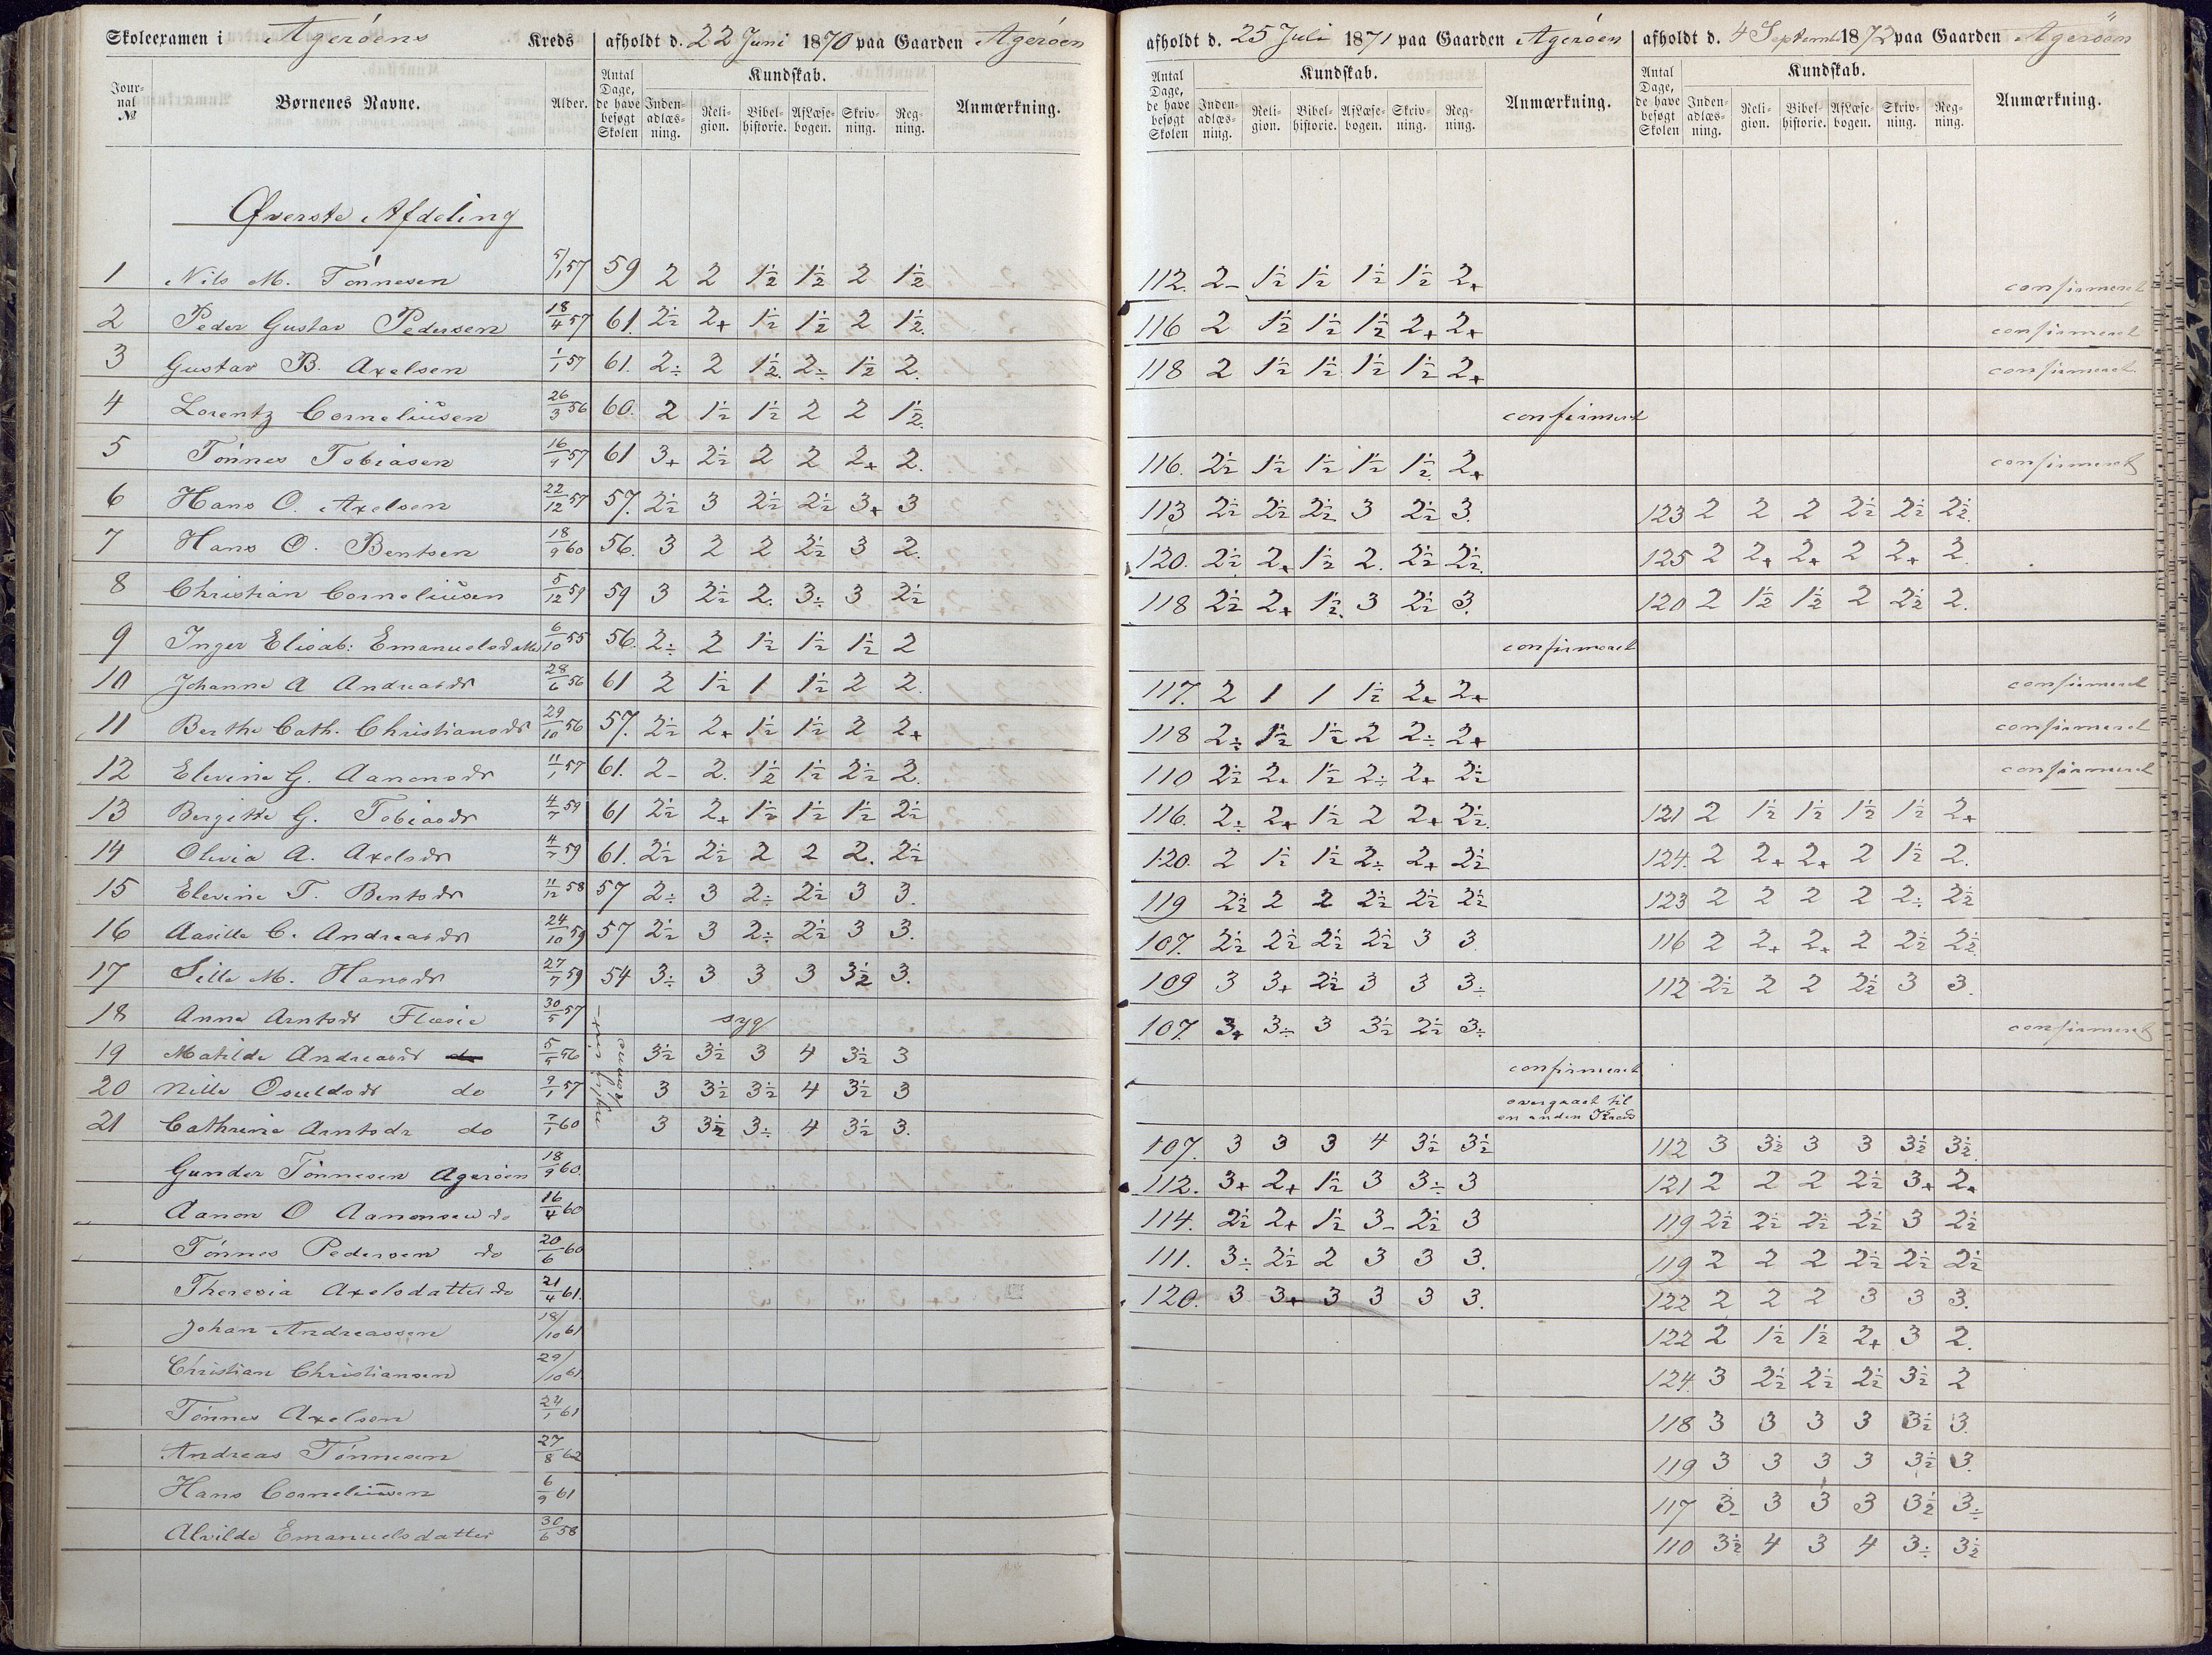 Skoleexamen i Agerøens Kreds afholdt d. 22 Juni 1870 paa Gaarden Agerøen afholdt d. 25 Juli 1871 paa Gaarden Agerøen afholdt d. 4 Septemb 1872 paa Gaarden Agerøen
Journal № Børnenes Navne. Alder. Antal Dage, de have besøgt Skolen Kundskab. Indenadlæsning. Religion. Bibelhistorie. AfLæsebogen. Skrivning. Regning. Anmærkning. Antal Dage, de have besøgt Skolen Kundskab. Indenadlæsning. Religion. Bibelhistorie. AfLæsebogen. Skrivning. Regning. Anmærkning. Antal Dage, de have besøgt Skolen Kundskab. Indenadlæsning. Religion. Bibelhistorie. AfLæsebogen. Skrivning. Regning. Anmærkning.
Øverste Afdeling
1 Nils M. Tønnesen 5/1 57 59 2 2 1½ 1½ 2 1½ 112. 2- 1½ 1½ 1½ 1½ 2+ confirmeret
2 Peder Gustav Pedersen 18/4 57 61. 2½ 2+ 1½ 1½ 2 1½. 116 2 1½ 1½ 1½ 2+ 2+ confirmeret
3 Gustav B. Axelsen 1/1 57 61. 2÷ 2 1½. 2÷ 1½ 2. 118 2 1½ 1½ 1½ 1½ 2+ confirmeret
4 Lorentz Corneliüsen 26/3 56 60. 2 1½ 1½ 2 2 1½. confirmert
5 Tønnes Tobiasen 16/9 57 61 3+ 2½ 2 2 2+ 2. 116. 2½ 1½ 1½ 1½ 1½. 2+ confirmeret
6 Hans O. Axelsen 22/12 57 57. 2½ 3 2½ 2½ 3+ 3 113 2½ 2½ 2½ 3 2½ 3. 123 2 2 2 2½ 2½ 2½.
7 Hans O. Bentsen 18/9 60 56. 3 2 2 2½ 3 2. 120. 2½ 2+ 1½ 2. 2½ 2½. 125 2 2+ 2+ 2 2+ 2.
8 Christian Corneliüsen 5/12 59 59 3 2½ 2. 3÷ 3 2½ 118 2½ 2+ 1½. 3 2½ 3. 120 2 1½ 1½ 2 2½ 2.
9 Inger Elisab: Emanuelsdatter 6/10 55 56. 2÷ 2 1½ 1½ 1½ 2 confirmeret
10 Johanne A Andreasdr 28/6 56 61 2 1½ 1 1½ 2 2. 117. 2 1 1 1½ 2+ 2+ confirmeret
11 Berthe Cath. Christiansdr 29/10 56 57. 2½ 2+ 1½ 1½ 2 2+ 118 2÷ 1½ 1½ 2 2÷ 2+ confirmeret
12 Elevine G. Aanonsdr 11/1 57 61. 2- 2. 1½ 1½ 2½ 2. 110 2½ 2+ 1½ 2÷ 2+ 2½ confirmeret
13 Bergitte G. Tobiasdr 4/7 59 61 2½ 2+ 1½ 1½ 1½ 2½ 116. 2÷ 2+ 1½ 2 2+ 2½. 121 2 1½ 1½ 1½ 1½ 2+
14 Olivia A. Axelsdr 4/7 59 61. 2½ 2½ 2 2 2. 2½ 120. 2 1½ 1½ 2÷ 2+ 2½ 124. 2 2+ 2+ 2 1½ 2.
15 Elevine T. Bentsdr 11/12 58 57 2÷ 3 2÷ 2½ 3 3. 119 2½ 2 2 2½ 2½ 2½ 123 2 2 2 2 2÷ 2½
16 Aasille C. Andreasdr 24/10 59 57 2½ 3 2÷ 2½ 3 3. 107. 2½ 2½ 2½ 2½ 3 3. 116 2 2+ 2+ 2 2½ 2½.
17 Sille M. Hansdr 27/7 59 54 3÷ 3 3 3 3½ 3. 109 3 3+ 2½ 3 3 3÷ 112 2½ 2 2 2½ 3 3.
18 Anna Arntsdr Flosie 30/5 57 syg 107. 3+ 3÷ 3 3½ 2½ 3÷ confirmeret
19 Matilde Andreasdr 5/5 56 3½ 3½ 3 4 3½ 3 confirmeret
20 Nille Osuldsdr do 9/1 57 3 3½ 3½ 4 3½ 3 overgaaet til en anden Kreds
21 Cathrine Arntsdr do 7/1 60 3 3½ 3÷ 4 3½ 3. 107. 3 3 3 4 3½ 3½ 112 3 3½ 3 3 3½ 3½.
Gunder Tønnesen Agerøen 18/9 60. 112. 3+ 2+ 1½ 3 3÷ 3 121 2 2 2 2½ 3+ 2+
Aanon O Aanonsen do 16/4 60 114. 2½ 2+ 1½ 3- 2½ 3 119 2½ 2½ 2½ 2½ 3 2½
Tønnes Pedersen do 20/6 60 111. 3÷ 2½ 2 3 3 3. 119 2 2 2 2½ 2½ 2½
Theresia Axelsdatter do 21/4 61. 120. 3 3+ 3 3 3 3. 122 2 2 2 3 3 3.
Johan Andreassen 18/10 61 122 2 1½ 1½ 2+ 3 2.
Christian Christiansen 29/10 61 124. 3 2½ 2½ 2½ 3½ 2
Tønnes Axelsen 24/1 61 118 3 3 3 3 3½ 3.
Andreas Tønnesen 27/8 62 119 3 3 3 3 3½ 3.
Hans Corneliussen 6/9 61 117 3- 3 3 3 3½ 3÷
Alvilde Emanuelsdatter 30/6 58 110 3½ 4 3 4 3÷ 3½